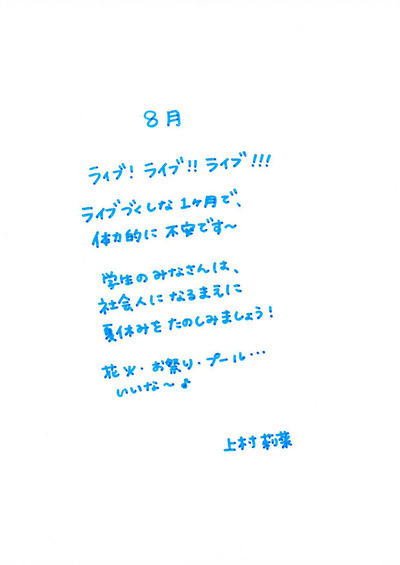 8月
ライブ! ライブ!! ライブ!!!
ライブづくしな1ヶ月で、
体力的に不安です〜
学生のみなさんは、
社会人になるまえに
夏休みをたのしみましょう!
花火・お祭り・プール・・・
いいな〜♪
上村莉菜